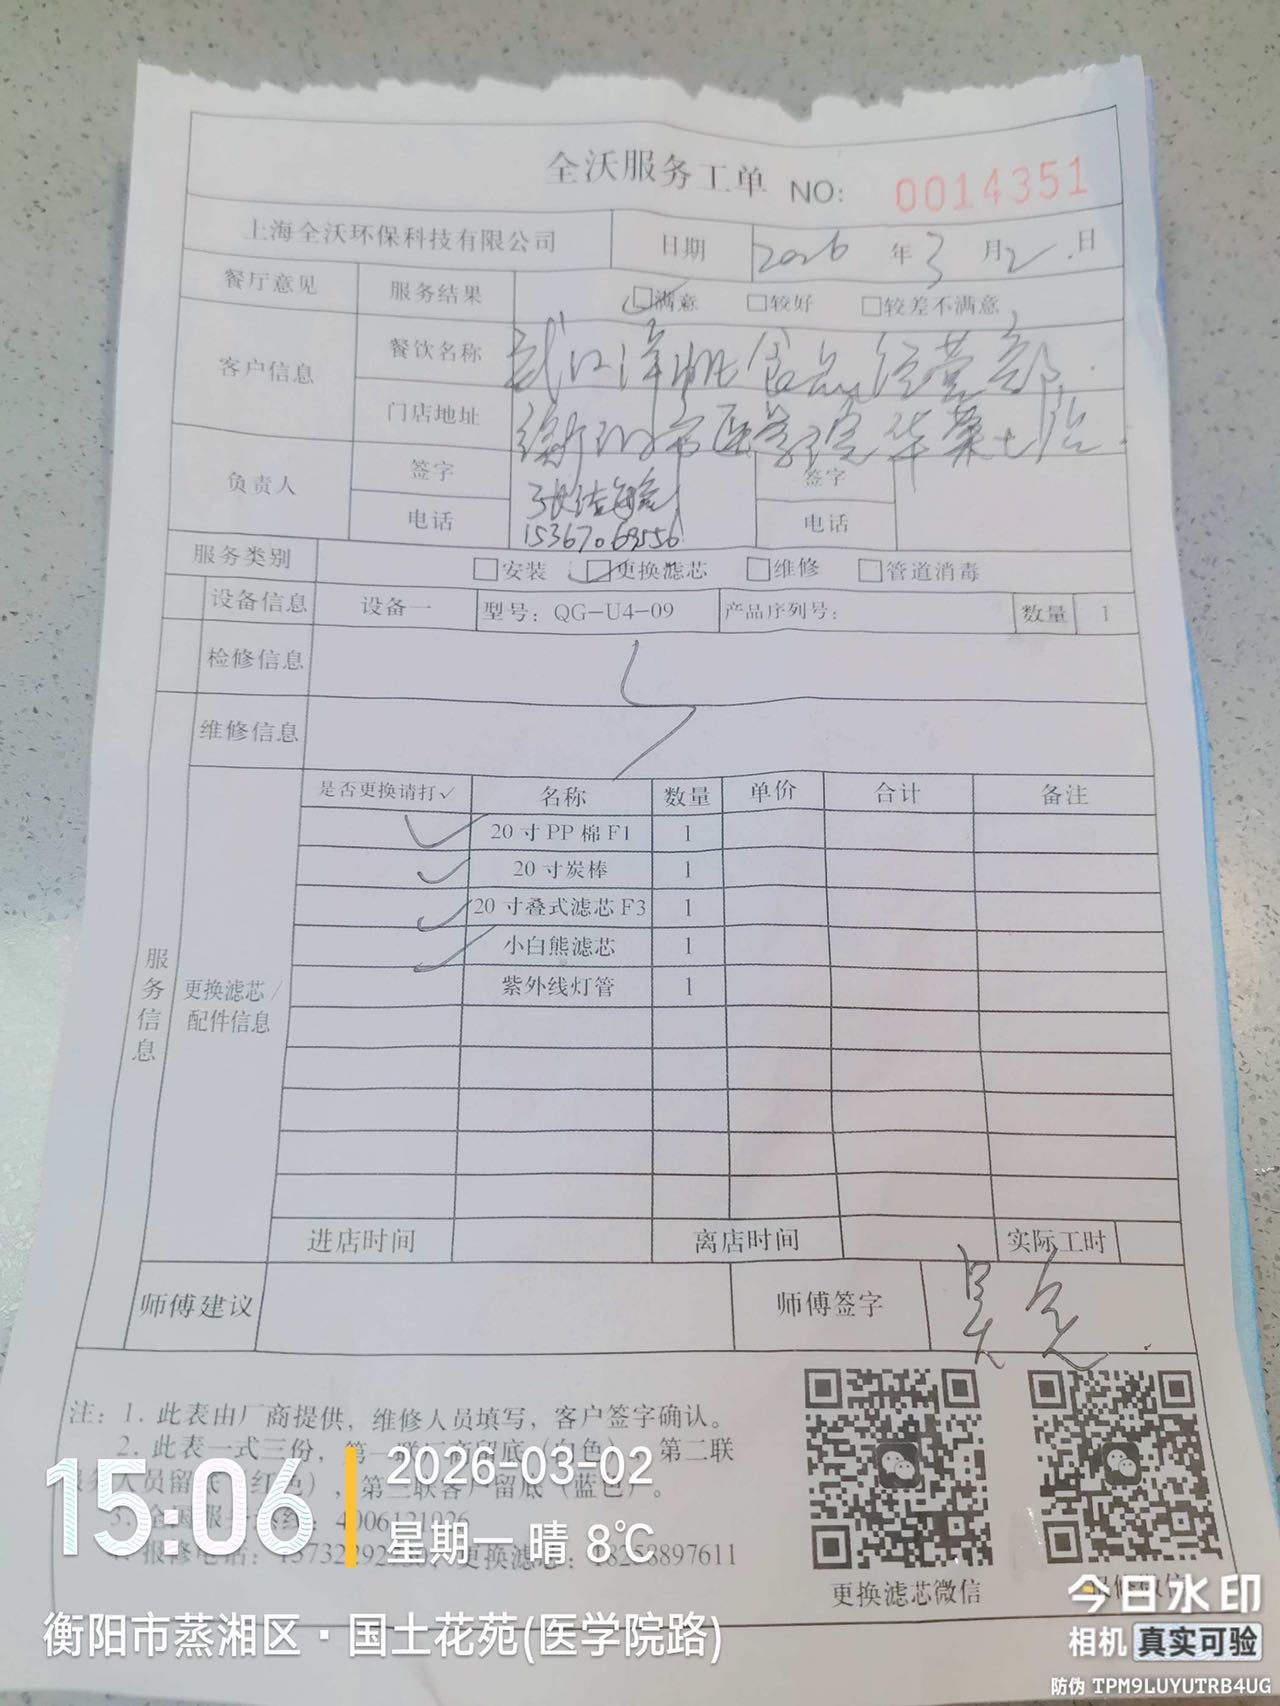 全沃服务工单 NO: 0014351
上海全沃环保科技有限公司 日期 2026 年 3 月 2 日
餐厅意见 服务结果 ☑满意 □较好 □较差不满意
客户信息 餐饮名称 食品经营部
门店地址 衡阳市医学院华荣七
负责人 签字 张 签字
电话 15367069556 电话
服务类别 □安装 ☑更换滤芯 □维修 □管道消毒
设备信息 设备一 型号: QG-U4-09 产品序列号: 数量 1
检修信息
维修信息
服务信息
更换滤芯/配件信息
是否更换请打✓ 名称 数量 单价 合计 备注
✓ 20寸PP棉F1 1
✓ 20寸炭棒 1
✓ 20寸叠式滤芯F3 1
✓ 小白熊滤芯 1
紫外线灯管 1
进店时间 离店时间 实际工时
师傅建议 师傅签字 吴
注: 1. 此表由厂商提供, 维修人员填写, 客户签字确认。
2. 此表一式三份, 第一联厂商留底(白色), 第二联
服务人员留底(红色), 第三联客户留底(蓝色)。
3. 全国服务热线: 4006121026
报修电话: 更换滤芯: 18258897611
更换滤芯微信
15:06
2026-03-02
星期一 晴 8℃
衡阳市蒸湘区·国土花苑(医学院路)
今日水印
相机 真实可验
防伪 TPM9LUYUTRB4UG